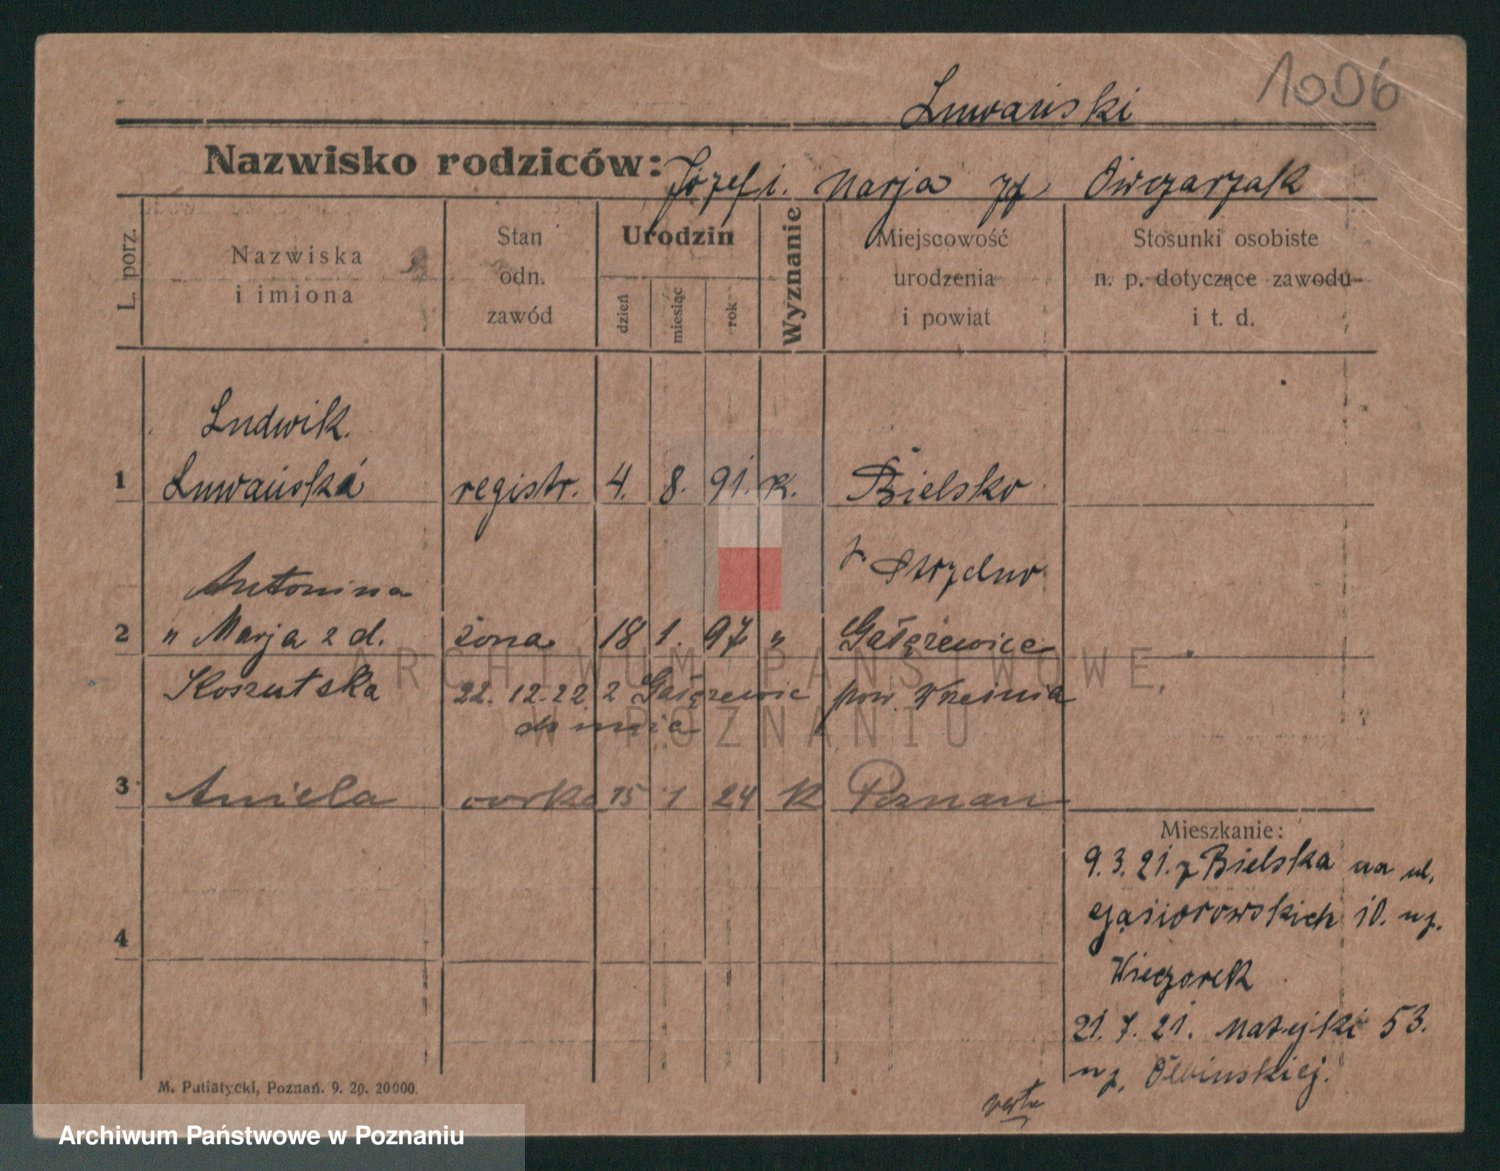 1006
Luwański
Nazwisko rodziców: Józef i. Marja zd Owczarzak
L. porz.
Nazwiska i imiona
Stan odn. zawód
Urodzin
dzień
miesiąc
rok
Wyznanie
Miejscowość urodzenia i powiat
Stosunki osobiste n. p. dotyczące zawodu i t. d.
Ludwik.
1 Luwański registr. 4. 8. 91. k. Bielsko
p. Strzelno
Antonina
2 " Marja z d. żona 18 1. 97 " Gałęzewice
Koszutska 22. 12. 22 z Gałęzewic pow. Września
3 Aniela córka 15 1 24 k Poznań
4
Mieszkanie:
9. 3. 21. z Bielska na ul.
Gąsiorowskich 10. u p.
Wieczorek
21. 7. 21. Matejki 53.
u p.
verte
M. Putiatycki, Poznań. 9. 20. 20000.
ARCHIWUM PAŃSTWOWE
W POZNANIU
Archiwum Państwowe w Poznaniu